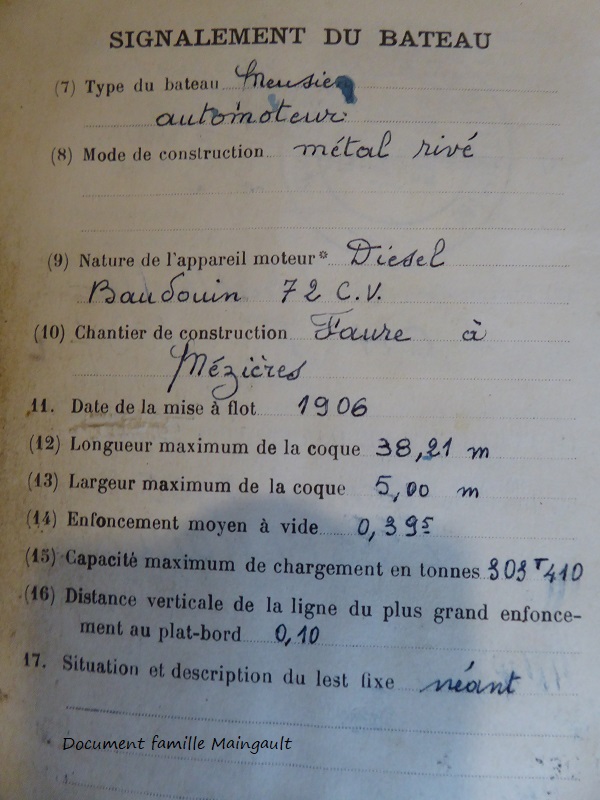 SIGNALEMENT DU BATEAU
(7) Type du bateau Meusien
automoteur
(8) Mode de construction métal rivé
(9) Nature de l'appareil moteur* Diesel
Baudouin 72 C.V.
(10) Chantier de construction Faure à
Mézières
11. Date de la mise à flot 1906
(12) Longueur maximum de la coque 38,21 m
(13) Largeur maximum de la coque 5,00 m
(14) Enfoncement moyen à vide 0,39⁵
(15) Capacité maximum de chargement en tonnes 303ᵀ410
(16) Distance verticale de la ligne du plus grand enfonce-
ment au plat-bord 0,10
17. Situation et description du lest fixe néant
Document famille Maingault